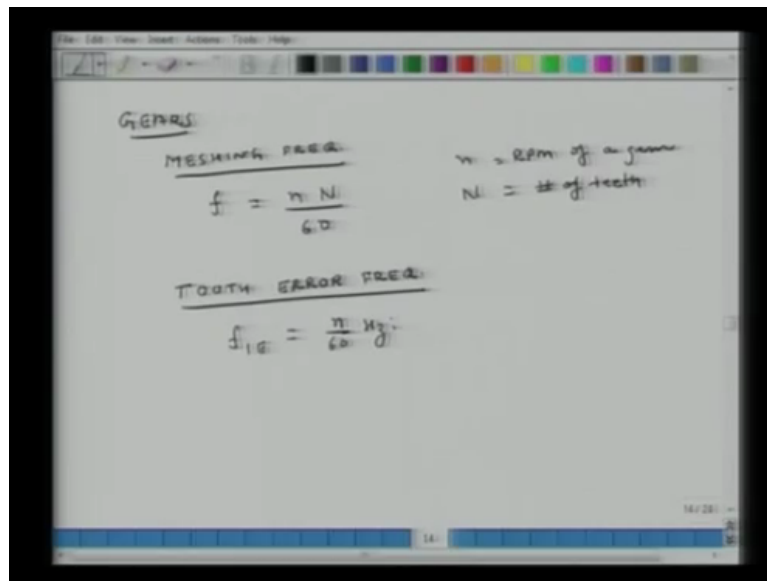 File Edit View Insert Actions Tools Help
GEARS
MESHING FREQ.
n = RPM of a gear
f = n N / 60
N = # of teeth
TOOTH ERROR FREQ.
f1G = n/60 Hz.
14